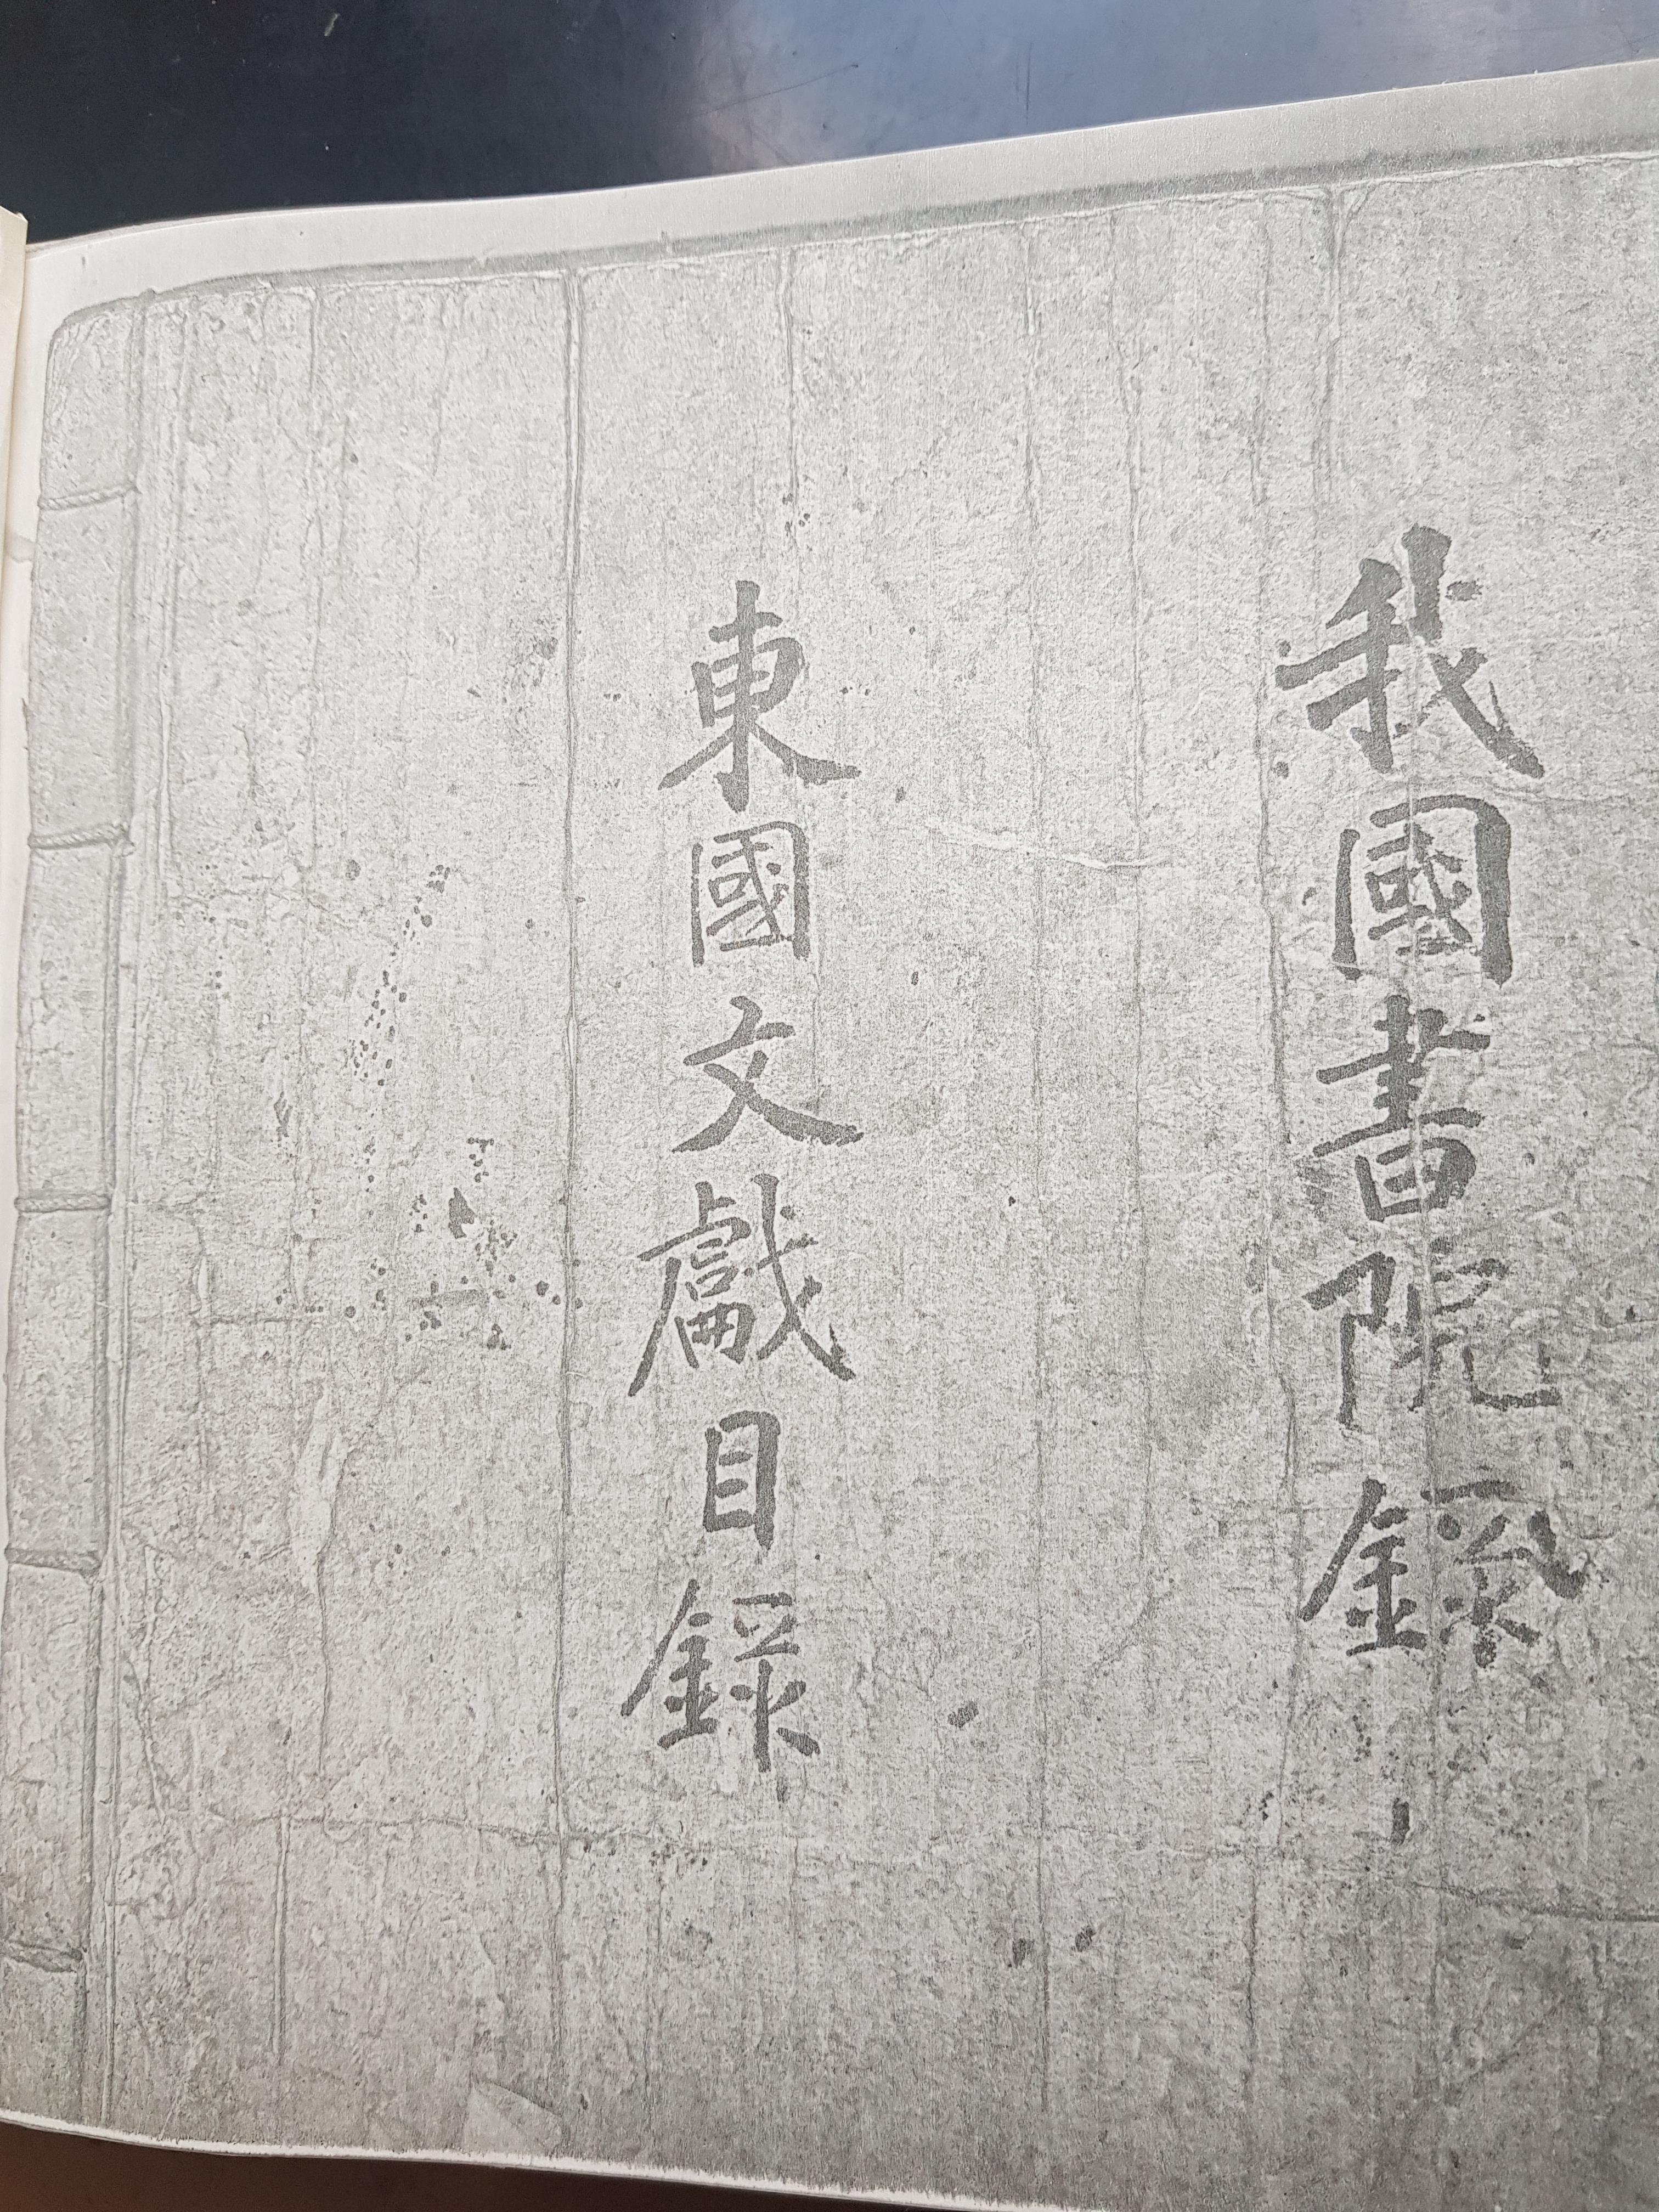 我國書院錄
東國文獻目錄